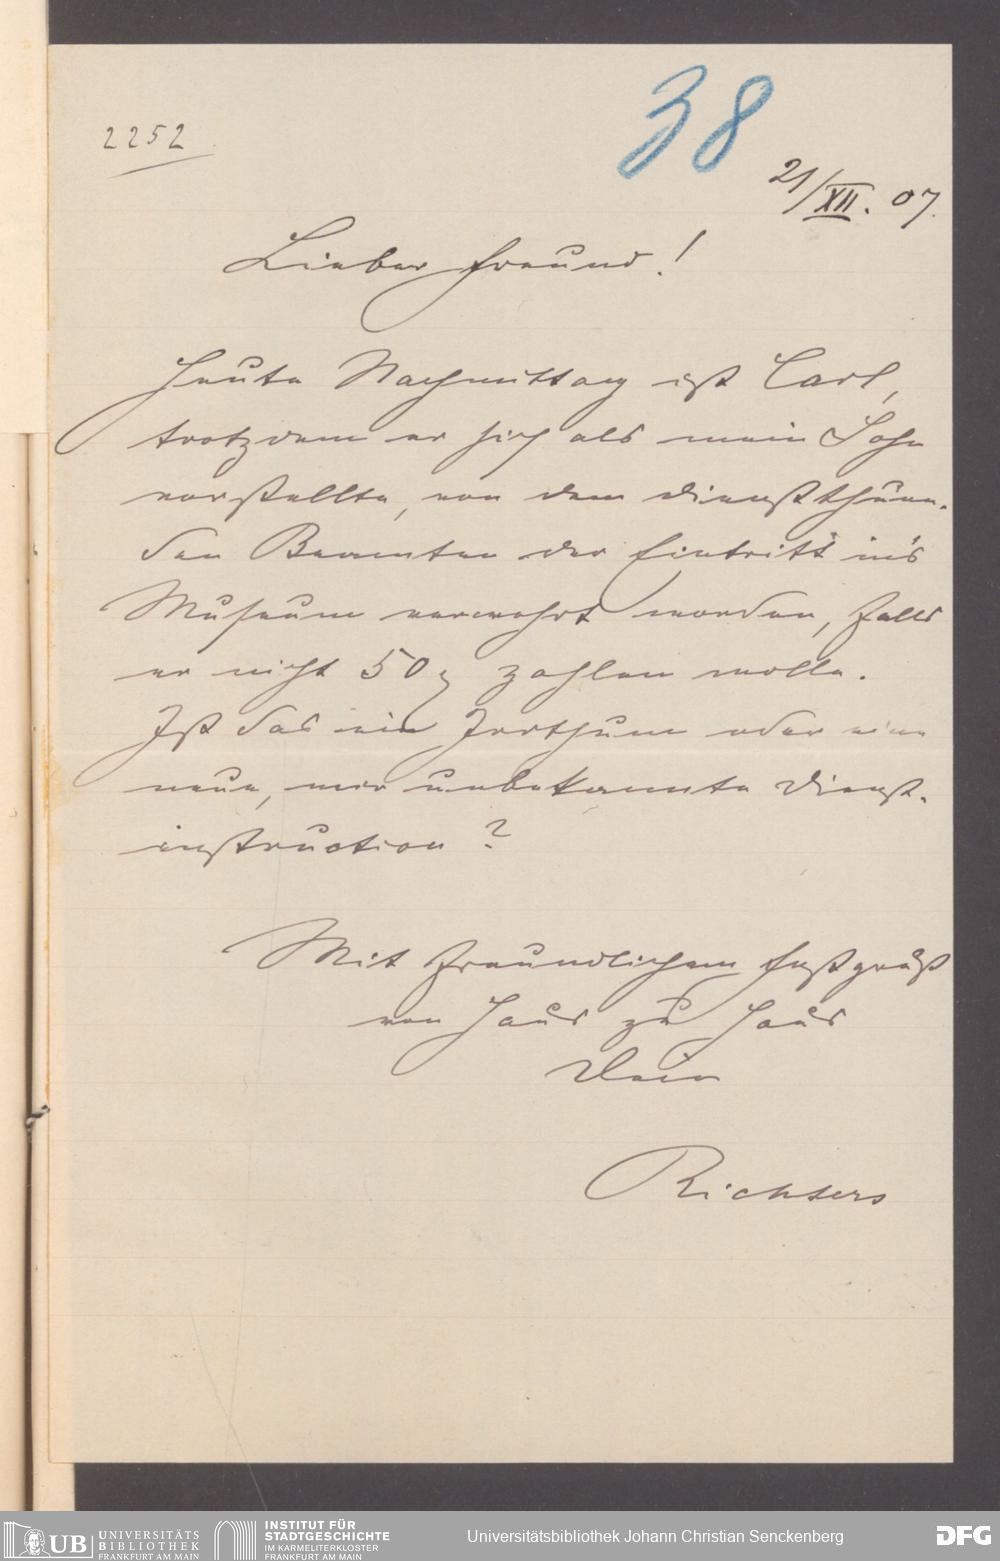 38
2252
21/XII. 07.
Lieber Freund!
Heute Nachmittag ist Carl,
trotzdem er sich als mein Sohn
vorstellte, von dem dienstthuen-
den Beamten der Eintritt in's
Museum verwehrt worden, falls
er nicht 50 ₰ zahlen wolle.
Ist das ein Irrthum oder eine
neue, mir unbekannte Dienst-
instruction?
Mit freundlichem Festgruß
von Haus zu Haus
Dein
Richters
UB UNIVERSITÄTS
BIBLIOTHEK
FRANKFURT AM MAIN
INSTITUT FÜR
STADTGESCHICHTE
IM KARMELITERKLOSTER
FRANKFURT AM MAIN
Universitätsbibliothek Johann Christian Senckenberg
DFG